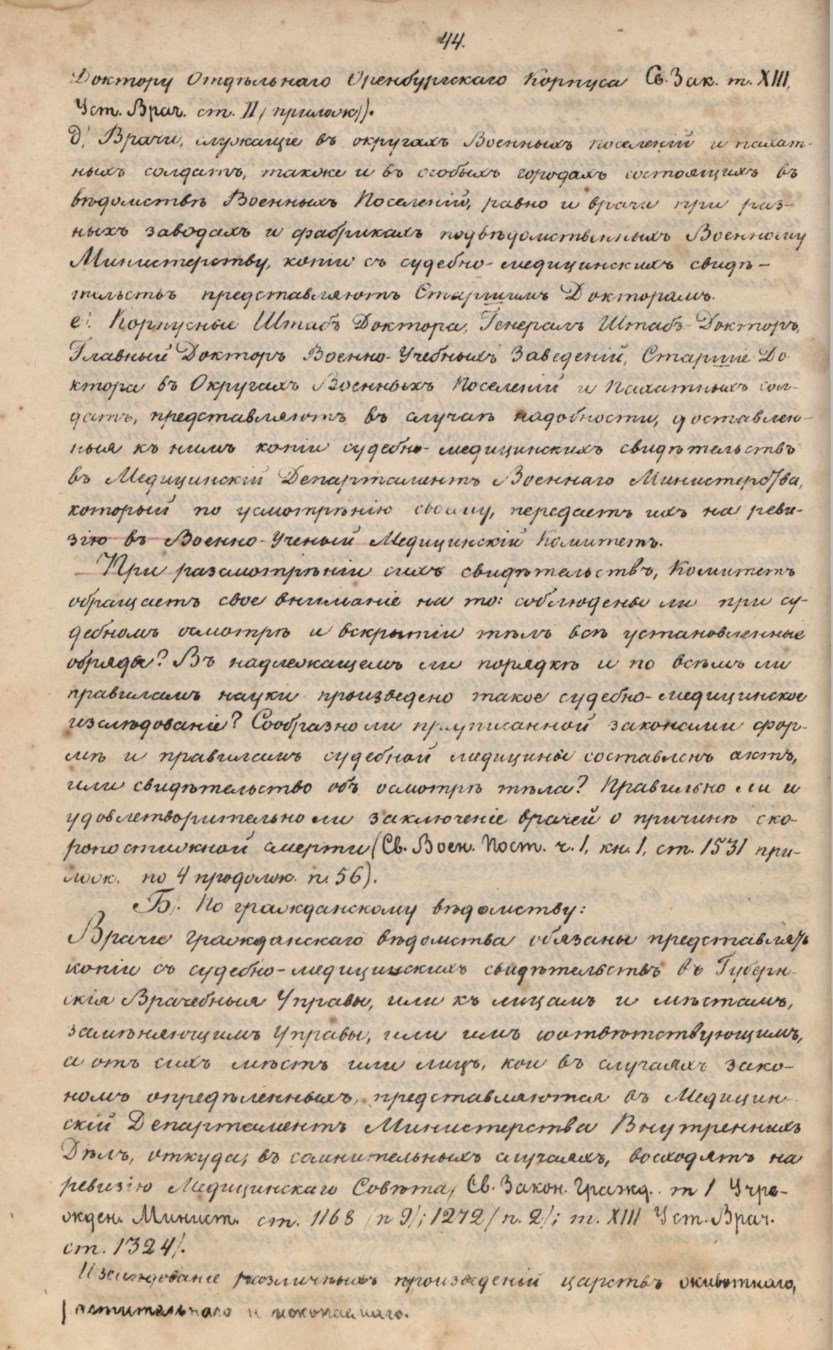 44.
Доктору Отдѣльнаго Оренбургскаго Корпуса Св. Зак. т. XIII,
Уст. Врач. ст. II /прилож/).
д. Врачи, служащіе въ округахъ Военныхъ поселеній и пахат-
ныхъ солдатъ, также и въ особыхъ городахъ состоящихъ въ
вѣдомствѣ Военныхъ Поселеній, равно и врачи при раз-
ныхъ заводахъ и фабрикахъ подвѣдомственныхъ Военному
Министерству, копіи съ судебно-медицинскихъ свидѣ-
тельствъ представляютъ Старшимъ Докторамъ.
е. Корпусные Штабъ Доктора, Генералъ Штабъ-Докторъ,
Главный Докторъ Военно-Учебныхъ Заведеній, Старшіе До
ктора въ Округахъ Военныхъ Поселеній и Пахатныхъ сол-
датъ, представляютъ въ случаѣ надобности, доставлен-
ныя къ нимъ копіи судебно-медицинскихъ свидѣтельствъ
въ Медицинскій Департаментъ Военнаго Министерства,
который по усмотрѣнію своему, передаетъ ихъ на реви-
зію въ Военно-Ученый Медицинскій Комитетъ.
При разсмотрѣніи сихъ свидѣтельствъ, Комитетъ
обращаетъ свое вниманіе на то: соблюдены ли при су-
дебномъ осмотрѣ и вскрытіи тѣлъ всѣ установленные
обряды? Въ надлежащемъ ли порядкѣ и по всѣмъ ли
правиламъ науки произведено такое судебно-медицинское
изслѣдованіе? Сообразно ли предписанной законами фор-
мѣ и правиламъ судебной медицины составленъ актъ,
или свидѣтельство объ осмотрѣ тѣла? Правильно ли и
удовлетворительно ли заключеніе врачей о причинѣ ско-
ропостижной смерти (Св. Воен. Пост. ч. 1, кн. 1, ст. 1531 при-
лож. по 4 продолж. п. 56).
Б. По гражданскому вѣдомству:
Врачи гражданскаго вѣдомства обязаны представлять
копіи съ судебно-медицинскихъ свидѣтельствъ въ Губерн-
скія Врачебныя Управы, или къ лицамъ и мѣстамъ,
замѣняющимъ Управы, или имъ соотвѣтствующимъ,
а отъ сихъ мѣстъ или лицъ, кои въ случаяхъ зако-
номъ опредѣленныхъ, представляются въ Медицин-
скій Департаментъ Министерства Внутреннихъ
Дѣлъ, откуда, въ сомнительныхъ случаяхъ, восходятъ на
ревизію Медицинскаго Совѣта, Св. Закон. Гражд. т 1 Учре-
жден. Минист. ст. 1168 /п 9/; 1272 /п. 2/; т. XIII Уст. Врач.
ст. 1324/.
Изслѣдованіе различныхъ произведеній царствъ животнаго,
растительнаго и ископаемаго.